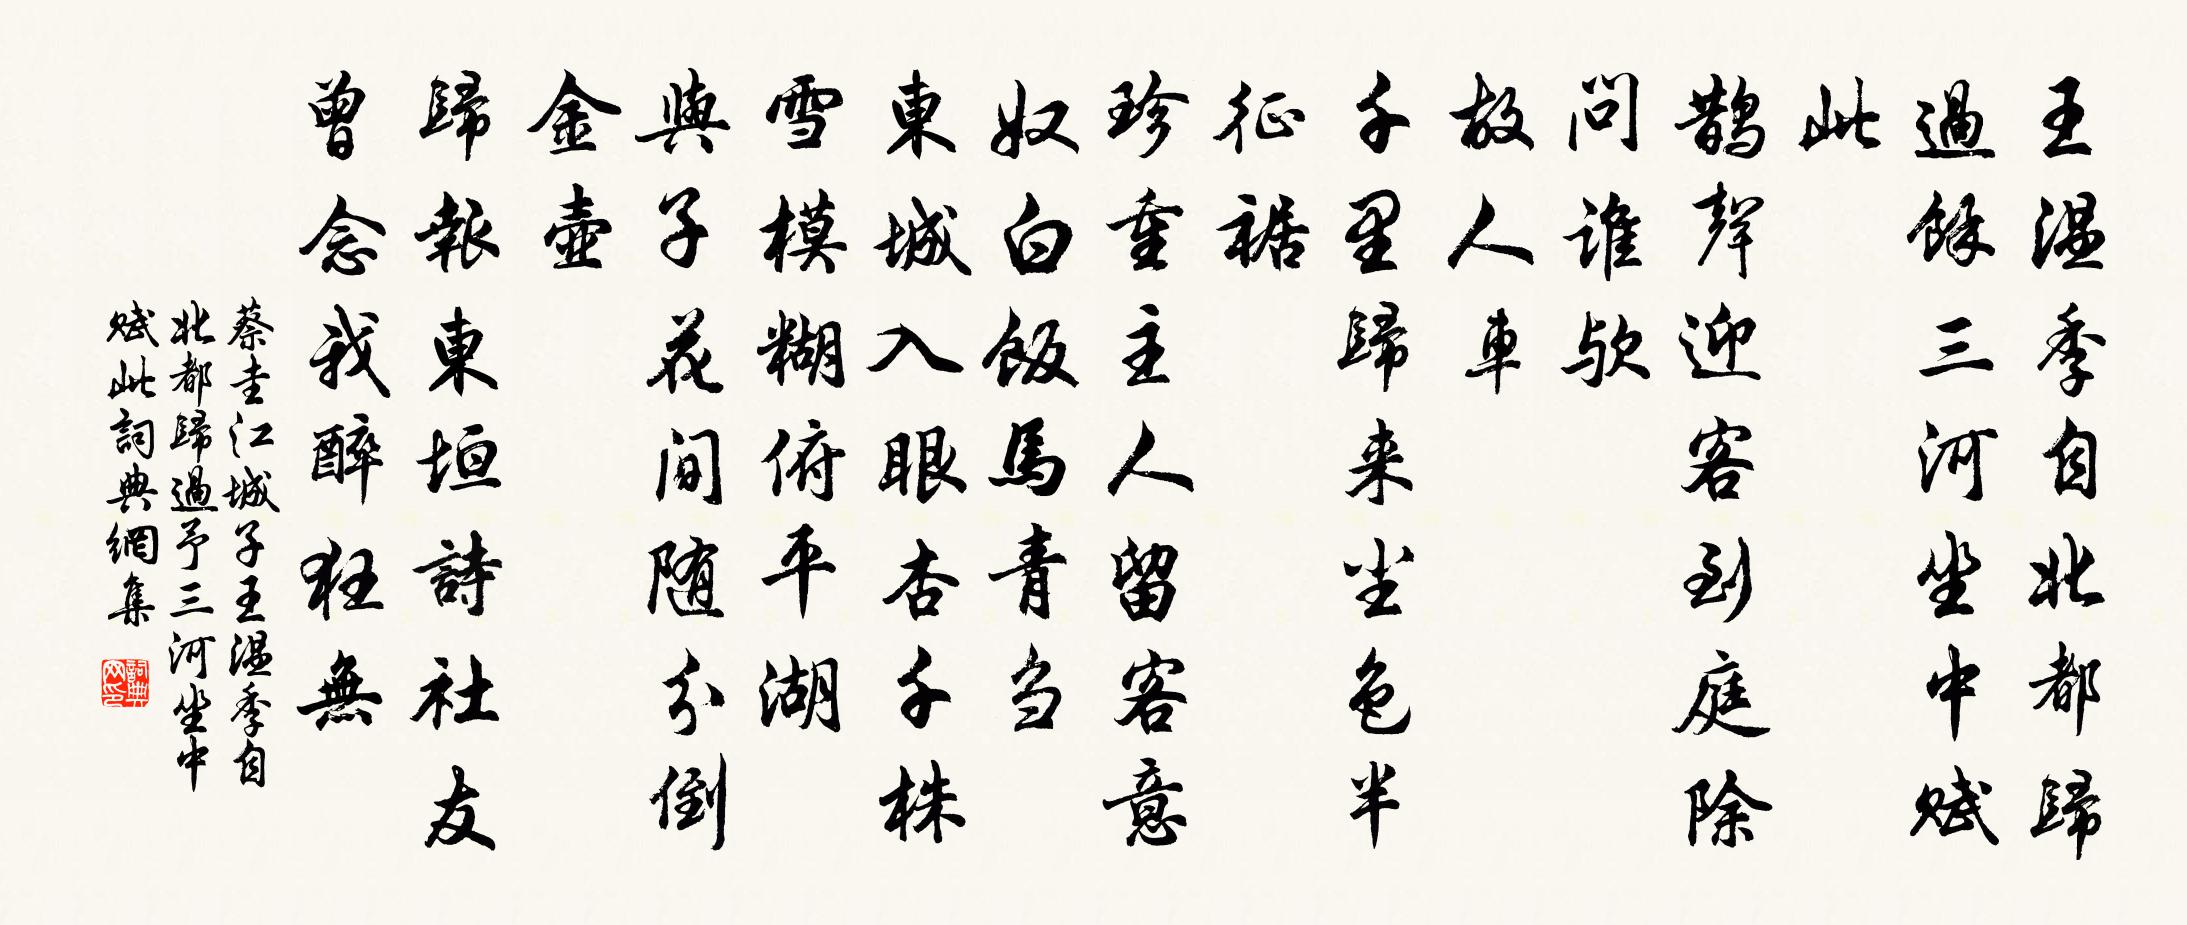 王温季自北都歸
過餘三河坐中賦
此
鵲聲迎客到庭除
問誰歟
故人車
千里歸来尘色半
征裾
珍重主人留客意
奴白飯馬青芻
東城入眼杏千株
雪模糊俯平湖
與子花间随分倒
金壺
歸報東垣詩社友
曾念我醉狂無
蔡圭江城子王温季自
北都歸過予三河坐中
賦此詞典網集
詞典网印